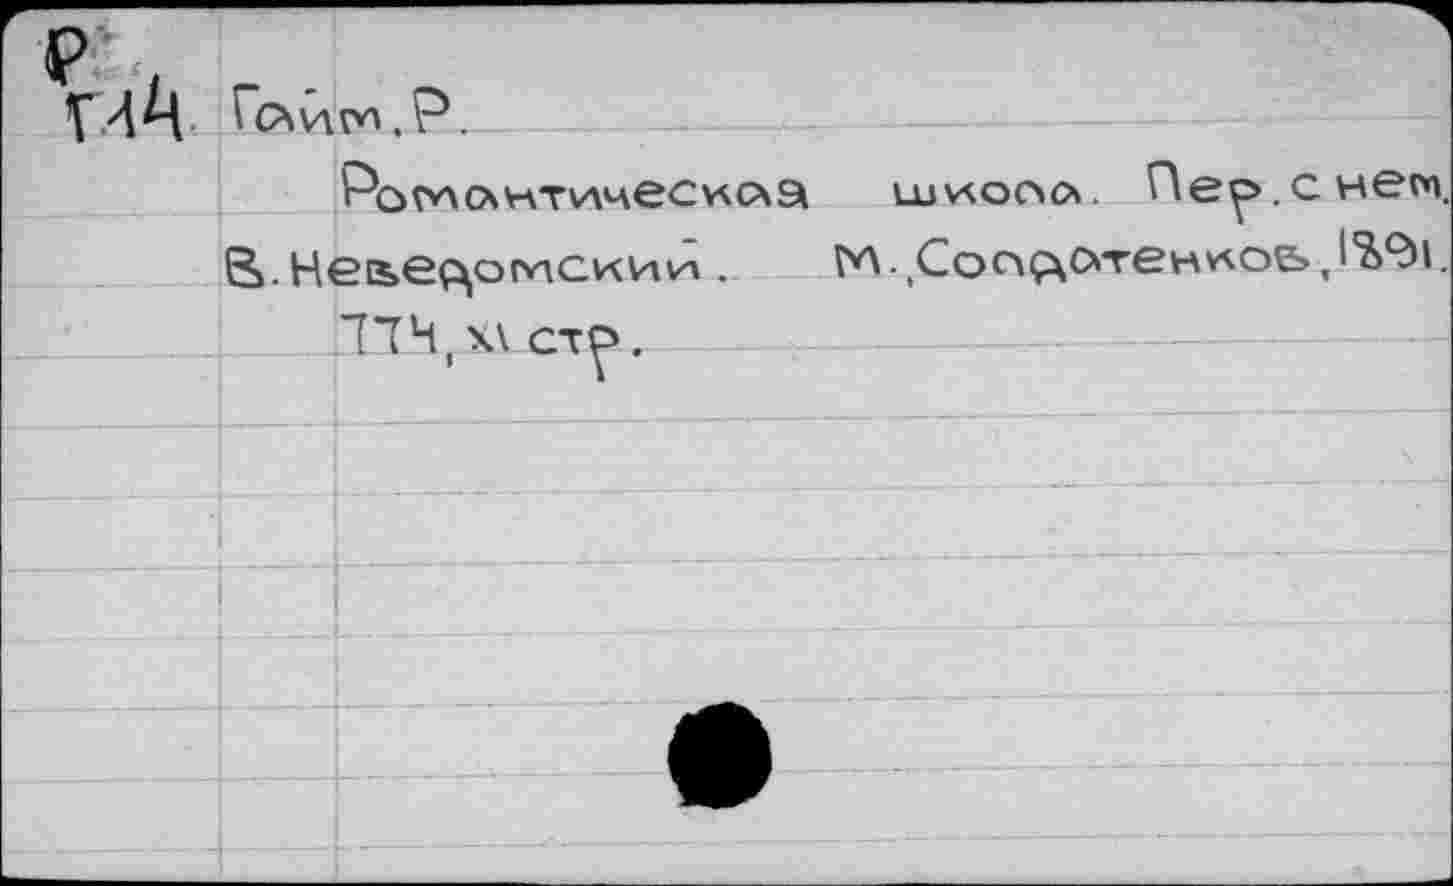 Р
Г14 Гайм, Р.
Романтическая школа. Пер. с нем.
В. Неведомский. М., Солдатенков, 1891.
774, XI стр.